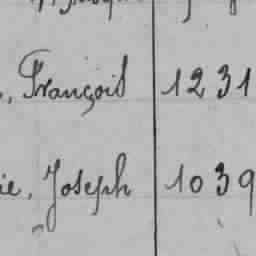 , François 1231
ie, Joseph 1039